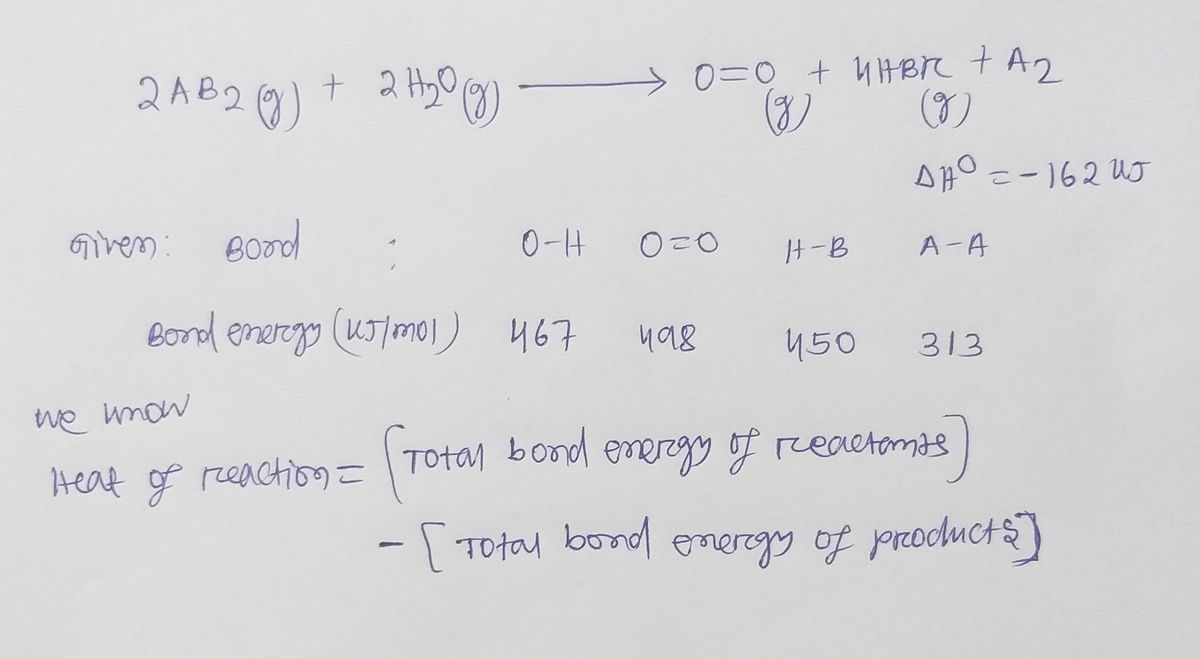 2AB2(g) + 2H2O(g) ⟶ O=O (g) + 4HBr (g) + A2
ΔH° = -162 kJ
Given: Bond : O-H O=O H-B A-A
Bond energy (kJ/mol) 467 498 450 313
we know
Heat of reaction = [Total bond energy of reactants]
- [Total bond energy of products]